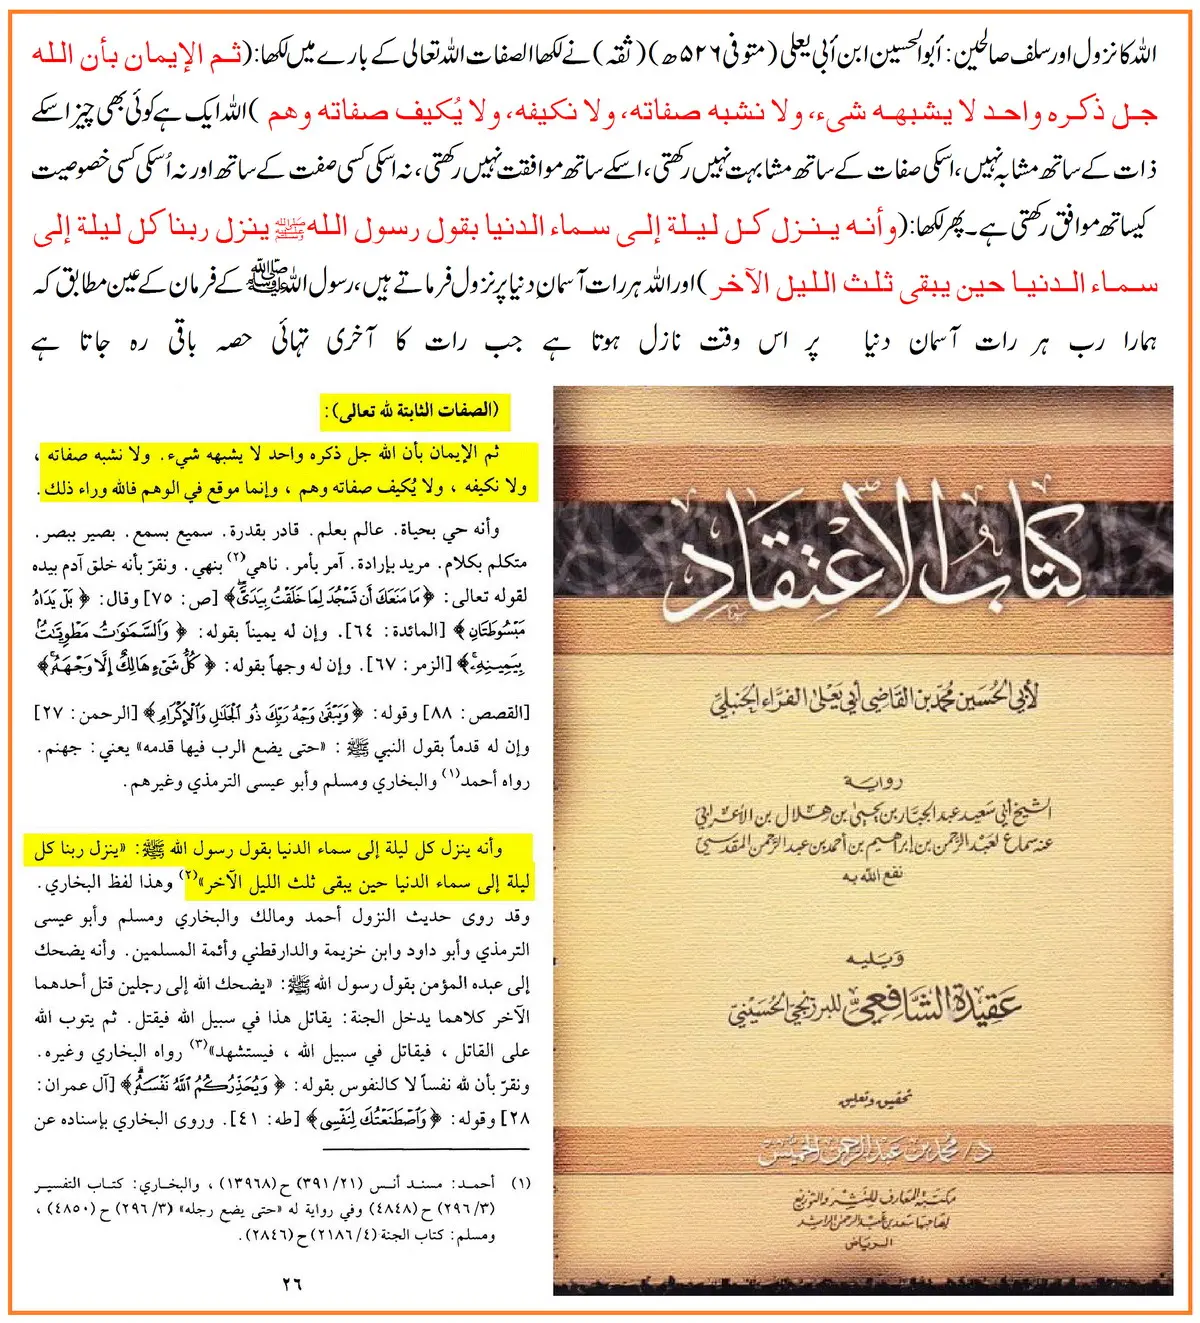 اللہ کا نزول اور سلف صالحین : أبو الحسین ابن أبی یعلی ( متوفی ۵۲۶ھ) ( ثقہ ) نے لکھا الصفات اللہ تعالی کے بارے میں لکھا:( ثم الإيمان بأن الله
جل ذكره واحد لا يشبهه شيء، ولا نشبه صفاته، ولا نكيفه، ولا يُكيف صفاته وهم )اللہ ایک ہے کوئی بھی چیز اسکے
ذات کے ساتھ مشابہ نہیں، اسکی صفات کے ساتھ مشابہت نہیں رکھتی، اسکے ساتھ موافقت نہیں رکھتی، نہ اسکی کسی صفت کے ساتھ اور نہ اُسکی کسی خصوصیت
کیساتھ موافق رکھتی ہے۔ پھر لکھا:( وأنه ينزل كل ليلة إلى سماء الدنيا بقول رسول الله ﷺ ينزل ربنا كل ليلة إلى
سماء الدنيا حين يبقى ثلث الليل الآخر )اور اللہ ہر رات آسمانِ دنیا پر نزول فرماتے ہیں، رسول اللہ ﷺ کے فرمان کے عین مطابق کہ
ہمارا رب ہر رات آسمان دنیا پر اس وقت نازل ہوتا ہے جب رات کا آخری تہائی حصہ باقی رہ جاتا ہے
(الصفات الثابتة لله تعالى):
ثم الإيمان بأن الله جل ذكره واحد لا يشبهه شيء. ولا نشبه صفاته ،
ولا نكيفه ، ولا يُكيف صفاته وهم ، وإنما موقع في الوهم فالله وراء ذلك.
وأنه حي بحياة. عالم بعلم. قادر بقدرة. سميع بسمع. بصير ببصر.
متكلم بكلام. مريد بإرادة. آمر بأمر. ناهي(٢) بنهي. ونقرّ بأنه خلق آدم بيده
لقوله تعالى: ﴿مَا مَنَعَكَ أَن تَسْجُدَ لِمَا خَلَقْتُ بِيَدَيَّ﴾ [ص: ٧٥] وقال: ﴿بَلْ يَدَاهُ
مَبْسُوطَتَانِ﴾ [المائدة: ٦٤]. وإن له يميناً بقوله: ﴿وَالسَّمَاوَاتُ مَطْوِيَّاتٌ
بِيَمِينِهِ﴾ [الزمر: ٦٧]. وإن له وجهاً بقوله: ﴿كُلُّ شَيْءٍ هَالِكٌ إِلَّا وَجْهَهُ﴾
[القصص: ٨٨] وقوله: ﴿وَيَبْقَىٰ وَجْهُ رَبِّكَ ذُو الْجَلَالِ وَالْإِكْرَامِ﴾ [الرحمن: ٢٧]
وإن له قدماً بقول النبي ﷺ : «حتى يضع الرب فيها قدمه» يعني: جهنم.
رواه أحمد(١) والبخاري ومسلم وأبو عيسى الترمذي وغيرهم.
وأنه ينزل كل ليلة إلى سماء الدنيا بقول رسول الله ﷺ: «ينزل ربنا كل
ليلة إلى سماء الدنيا حين يبقى ثلث الليل الآخر»(٢) وهذا لفظ البخاري.
وقد روى حديث النزول أحمد ومالك والبخاري ومسلم وأبو عيسى
الترمذي وأبو داود وابن خزيمة والدارقطني وأئمة المسلمين. وأنه يضحك
إلى عبده المؤمن بقول رسول الله ﷺ: «يضحك الله إلى رجلين قتل أحدهما
الآخر كلاهما يدخل الجنة: يقاتل هذا في سبيل الله فيقتل. ثم يتوب الله
على القاتل ، فيقاتل في سبيل الله ، فيستشهد»(٣) رواه البخاري وغيره.
ونقرّ بأن لله نفساً لا كالنفوس بقوله: ﴿وَيُحَذِّرُكُمُ اللَّهُ نَفْسَهُ﴾ [آل عمران:
٢٨] وقوله: ﴿وَاصْطَنَعْتُكَ لِنَفْسِي﴾ [طه: ٤١]. وروى البخاري بإسناده عن
(١) أحمد: مسند أنس (٣٩١/٢١) ح(١٣٩٦٨) ، والبخاري: كتاب التفسير
(٢٩٦/٣) ح(٤٨٤٨) وفي رواية له «حتى يضع رجله» (٢٩٦/٣) ح(٤٨٥٠) ،
ومسلم: كتاب الجنة (٢١٨٦/٤) ح(٢٨٤٦).
٢٦
كتاب الاعتقاد
لأبي الحسين محمد بن القاضي أبي يعلى الفراء الحنبلي
رواية
الشيخ أبي سعيد عبد الجبار بن يحيى بن هلال بن الأعرابي
عنه سماع لعبد الرحمن بن إبراهيم بن أحمد بن عبد الرحمن المقدسي
نفع الله به
ويليه
عقيدة الشافعي للبرزنجي الحسيني
تحقيق وتعليق
د/ محمد بن عبد الرحمن الخميس
مكتبة المعارف للنشر والتوزيع
لصاحبها سعد بن عبد الرحمن الراشد
الرياض